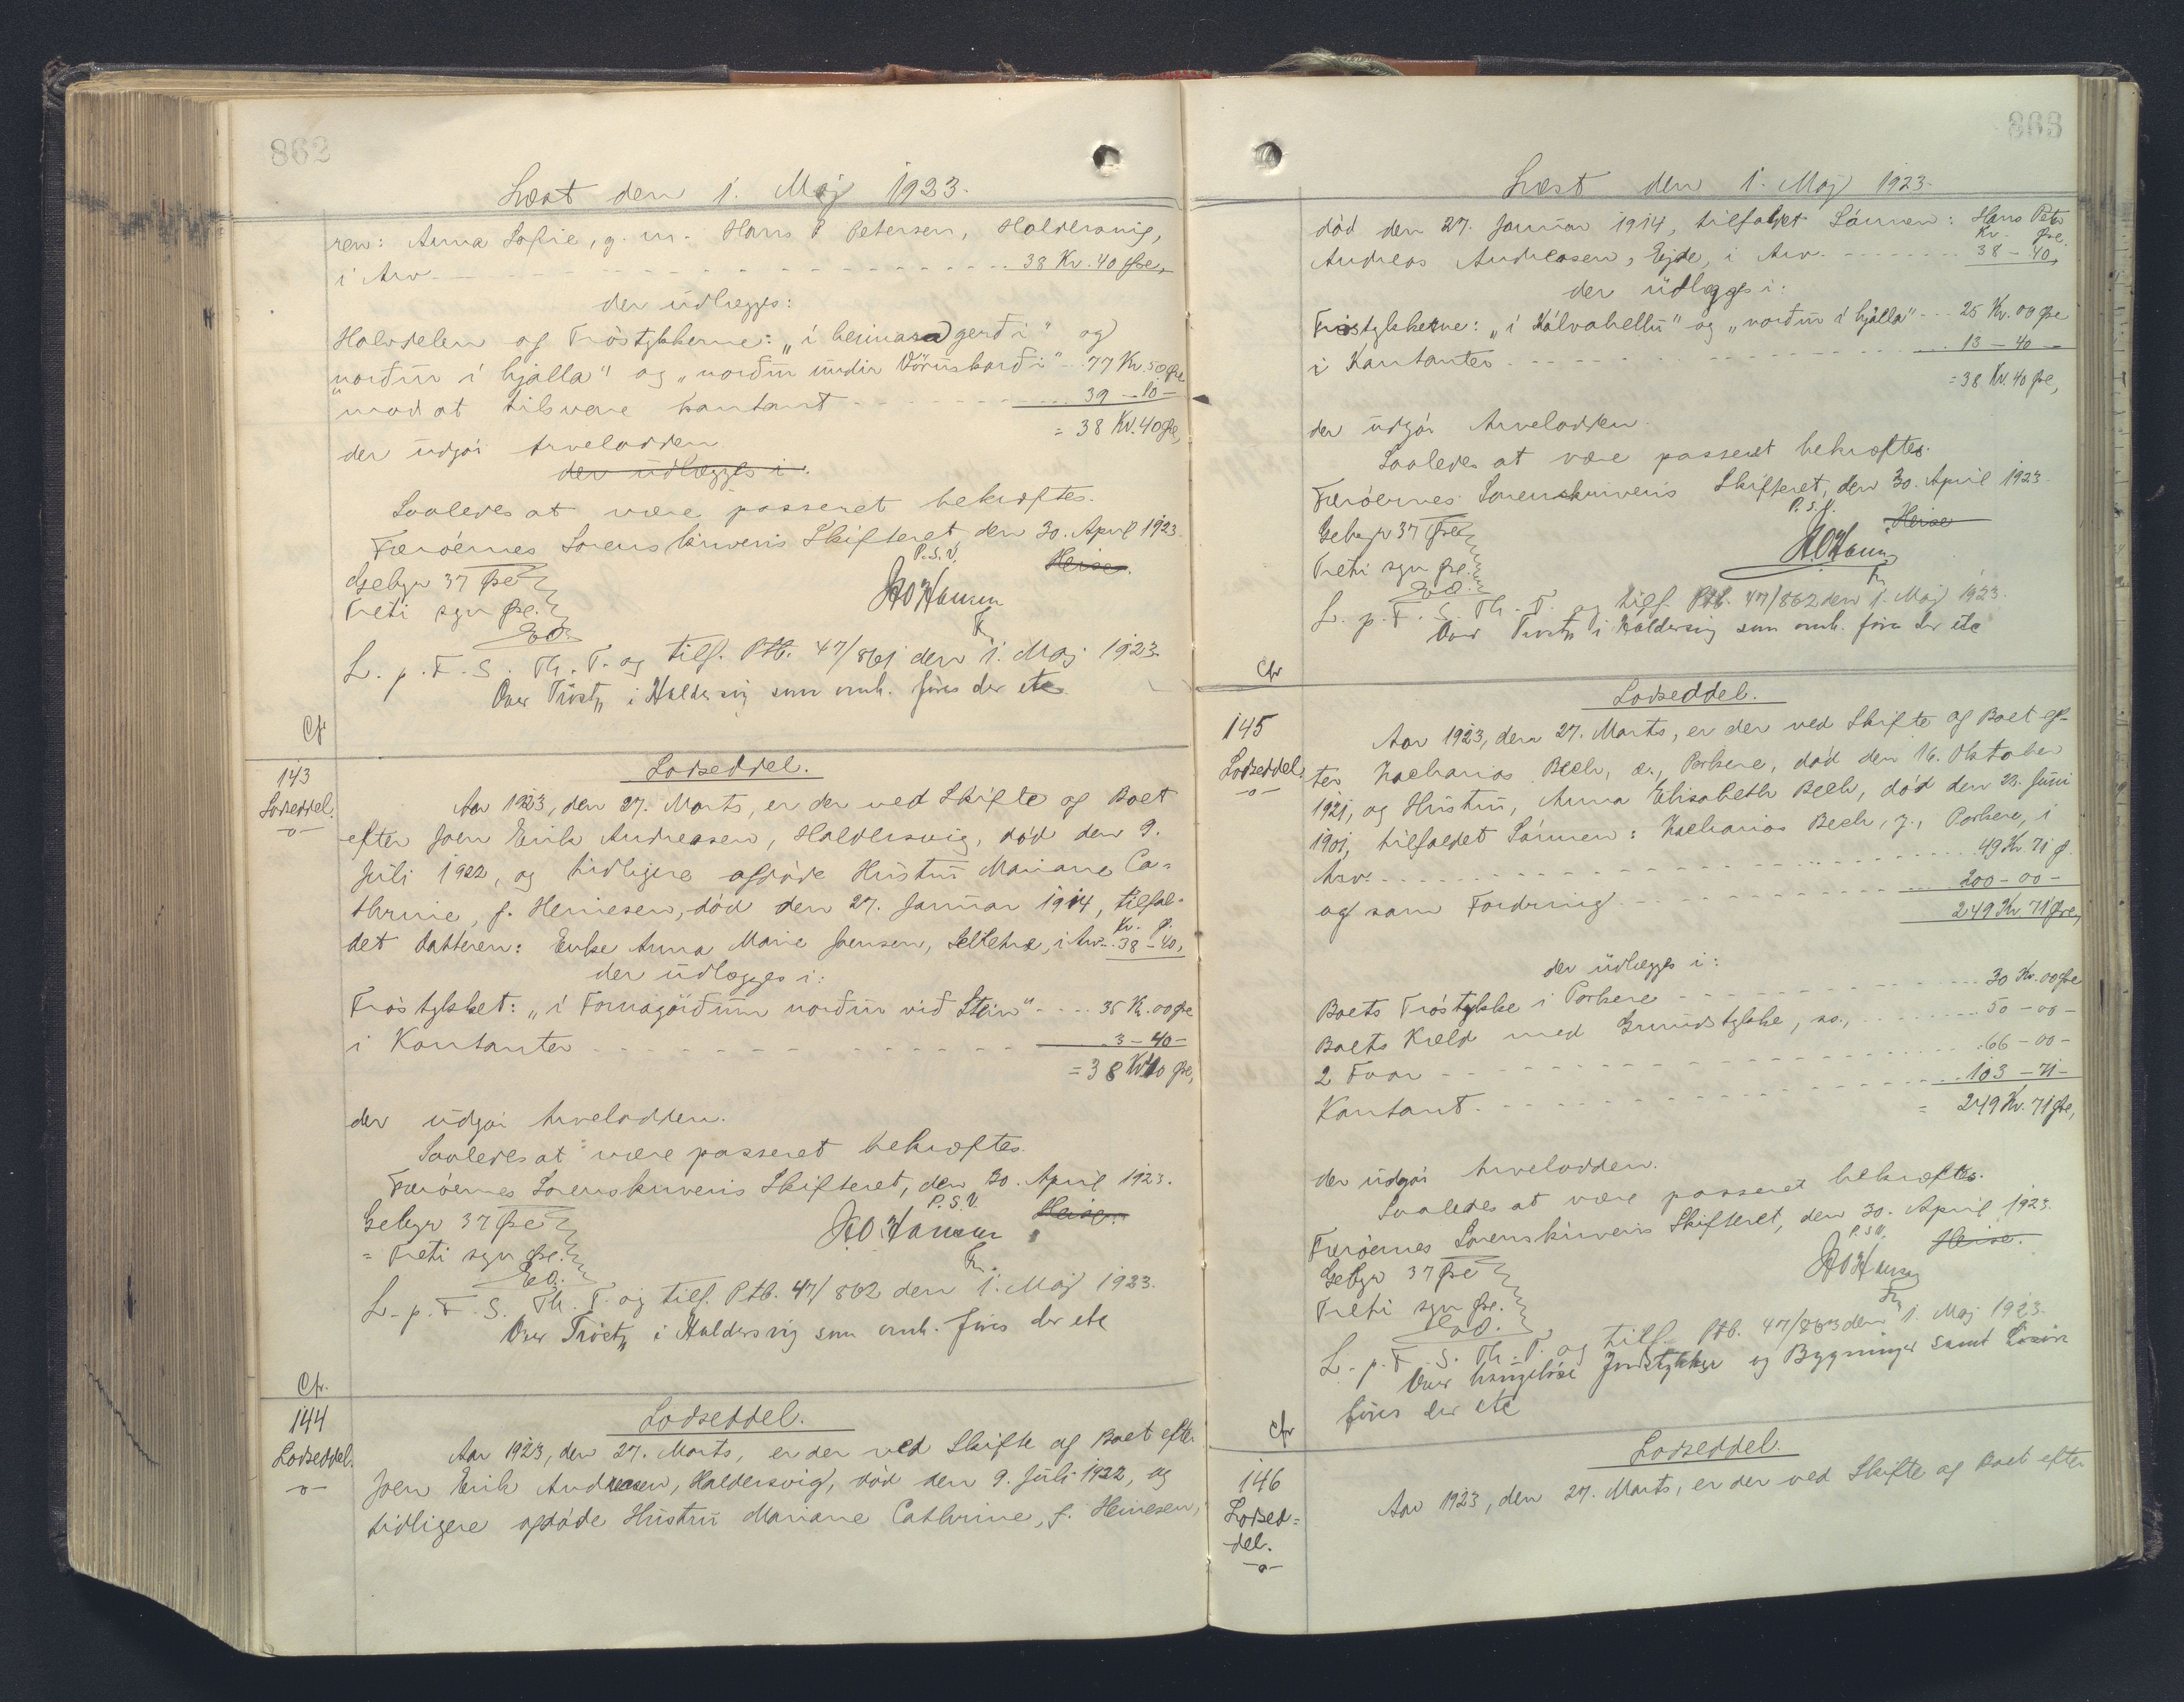 862
Læst den 1. Maj 1923.
ren: Anna Sofie, g. m. Hans P Petersen, Haldersvig,
i Arv - - - 38 Kr. 40 Øre,
der udlægges:
Halvdelen af Tróstykkerne: „í heimara gerði" og
„norðuri í hjalla" og „norðuri undir Vørusbarði" - 77 Kr. 50 Øre
mod at tilsvare kontant - - - 39 - 10 -
= 38 Kr. 40 Øre,
der udgør Arvelodden.
der udlægges i.
Saaledes at være passeret bekræftes.
Færöernes Sorenskriveris Skifteret, den 30. April 1923.
P.S.V. Heise.
Gebyr 37 Øre
Treti syv Øre.
L. p. F. S. Th. T. og tilf. Ptb. 47/861 den 1. Maj 1923.
Over Tróst„ i Haldersvig som omh. föres der etc
Cfr
143
Lodseddel.
Lodseddel.
Aar 1923, den 27. Marts, er der ved Skifte af Boet
efter Joen Erik Andreasen, Haldersvig, död den 9.
Juli 1922, og tidligere afdöde Hustru Mariane Ca-
thrine, f. Heinesen, död den 27. Januar 1914, tilfal-
det Datteren: Enke Anna Marie Joensen, Selletræ, i Arv - 38 - 40,
Kr. Ø.
der udlægges i:
Tróstykket: „í Fornagørðum norðuri við Stein" - - - 35 Kr. 00 Øre
i Kontanter - - - 3 - 40 -
= 38 Kr 40 Øre,
der udgør Arvelodden.
Saaledes at være passeret bekræftes.
Færöernes Sorenskriveris Skifteret, den 30. April 1923.
P.S.V. Heise.
Gebyr 37 Øre
= Treti syv Øre.
L. p. F. S. Th. T. og tilf. Ptb. 47/862 den 1. Maj 1923.
Over Tróst„ i Haldersvig som omh. föres der etc
Cfr.
144
Lodseddel.
Lodseddel.
Aar 1923, den 27. Marts, er der ved Skifte af Boet efter
Joen Erik Andreasen, Haldersvig, död den 9. Juli 1922, og
tidligere afdöde Hustru Mariane Cathrine, f. Heinesen,
863
Læst den 1. Maj 1923.
död den 27. Januar 1914, tilfaldet Sönnen: Hans Peter
Kr. Øre.
Andreas Andreasen, Ejde, i Arv. - - - 38 - 40,
der udlægges i:
Tróstykkerne: „í Kálvahellu" og „norðuri í hjalla" - - - 25 Kr. 00 Øre
i Kontanter - - - 13 - 40 -
= 38 Kr. 40 Øre,
der udgør Arvelodden.
Saaledes at være passeret bekræftes.
Færöernes Sorenskriveris Skifteret, den 30. April 1923.
P.S.V. Heise
Gebyr 37 Øre
Treti syv Øre.
L. p. F. S. Th. T. og tilf. Ptb. 47/862 den 1. Maj 1923.
Over Tróst„ i Haldersvig som omh. föres der etc
Cfr
145
Lodseddel.
Lodseddel.
Aar 1923, den 27. Marts, er der ved Skifte af Boet ef-
ter Zacharias Bech, æ., Porkere, död den 16. Oktober
1921, og Hustru, Anna Elisabeth Bech, död den 23. Juni
1901, tilfaldet Sönnen: Zacharias Bech, y., Porkere, i
Arv. - - - 49 Kr. 71 Ø.
og som Fordring - - - 200 - 00 -
249 Kr 71 Øre,
der udlægges i:
Boets Tróstykke i Porkere - - - 30 Kr. 00 Øre
Boets Kæld med Grundstykke, sa., - - - 50 - 00 -
2 Faar - - - 66 - 00 -
Kontant. - - - 103 - 71 -
= 249 Kr. 71 Øre,
der udgør Arvelodden.
Saaledes at være passeret bekræftes.
Færöernes Sorenskriveris Skifteret, den 30. April 1923.
P.S.V. Heise.
Gebyr 37 Øre
Treti syv Øre.
L. p. F. S. Th. T. og tilf. Ptb. 47/863 den 1. Maj 1923.
Over Jordstykker og Bygninger samt Lösöre
föres der etc
Cfr
146
Lodsed=
del.
Lodseddel.
Aar 1923, den 27. Marts, er der ved Skifte af Boet efter